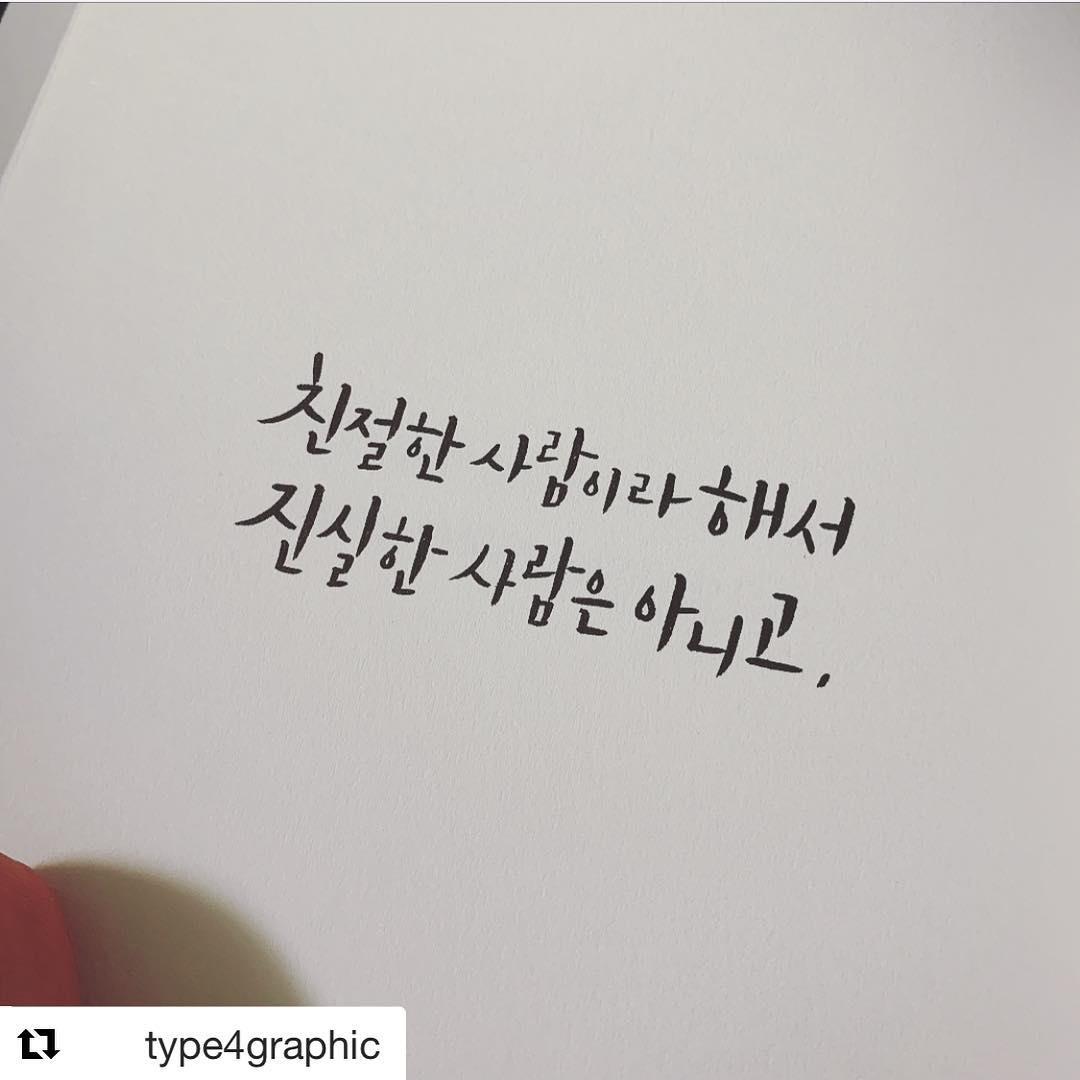 친절한 사람이라 해서
진실한 사람은 아니고.
type4graphic